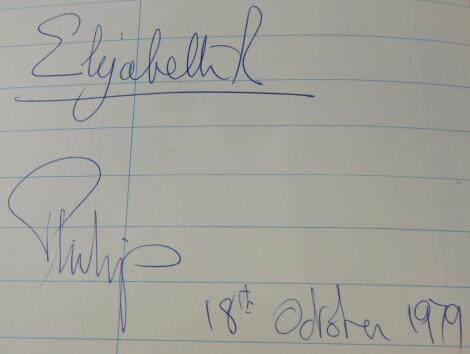 Elizabeth R
Philip
18th October 1979